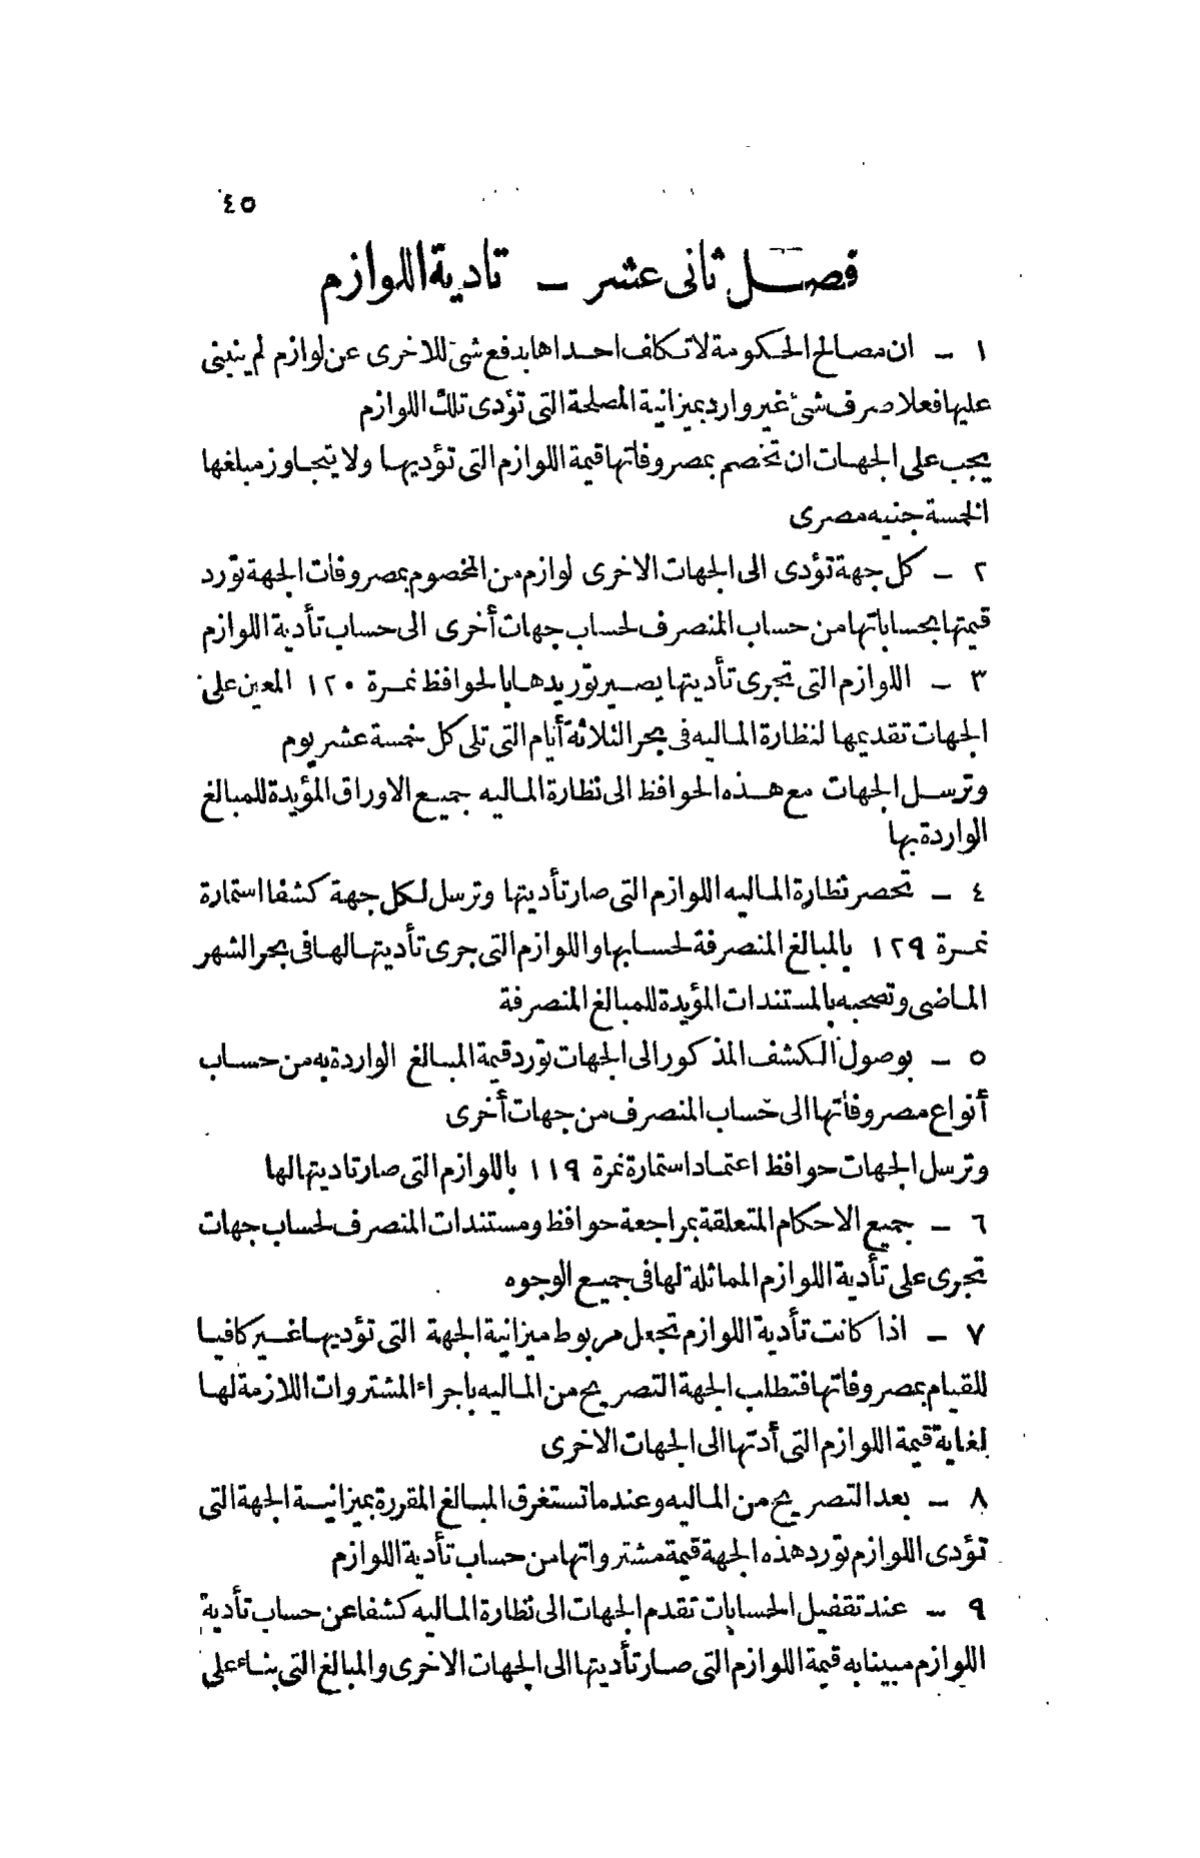 ٤٥
فصل ثانى عشر — تادية اللوازم
١ — ان مصالح الحكومة لا تكلف احداها بدفع شئ للاخرى عن لوازم لم ينبنى
عليها فعلا صرف شئ غير وارد بميزانية المصلحة التى تؤدى تلك اللوازم
يجب على الجهات ان تخصم بمصروفاتها قيمة اللوازم التى تؤديها ولا يتجاوز مبلغها
الخمسة جنيه مصرى
٢ — كل جهة تؤدى الى الجهات الاخرى لوازم من المخصوم بمصروفات الجهة تورد
قيمتها بحساباتها من حساب المنصرف لحساب جهات أخرى الى حساب تأدية اللوازم
٣ — اللوازم التى تجرى تأديتها يصير توريدها بالحوافظ نمرة ١٢٠ المعين على
الجهات تقديمها لنظارة الماليه فى بحر الثلاثة أيام التى تلى كل خمسة عشر يوم
وترسل الجهات مع هذه الحوافظ الى نظارة الماليه جميع الاوراق المؤيدة للمبالغ
الواردة بها
٤ — تحصر نظارة الماليه اللوازم التى صار تأديتها وترسل لكل جهة كشفا استمارة
نمرة ١٢٩ بالمبالغ المنصرفة لحسابها واللوازم التى جرى تأديتها لها فى بحر الشهر
الماضى وتصحبه بالمستندات المؤيدة للمبالغ المنصرفة
٥ — بوصول الكشف المذكور الى الجهات تورد قيمة المبالغ الواردة به من حساب
أنواع مصروفاتها الى حساب المنصرف من جهات أخرى
وترسل الجهات حوافظ اعتماد استمارة نمرة ١١٩ باللوازم التى صار تاديتها لها
٦ — جميع الاحكام المتعلقة بمراجعة حوافظ ومستندات المنصرف لحساب جهات
تجرى على تأدية اللوازم المماثلة لها فى جميع الوجوه
٧ — اذا كانت تأدية اللوازم تجعل مربوط ميزانية الجهة التى تؤديها غير كافيا
للقيام بمصروفاتها فتطلب الجهة التصريح من الماليه باجراء المشتروات اللازمة لها
لغاية قيمة اللوازم التى أدتها الى الجهات الاخرى
٨ — بعد التصريح من الماليه وعندما تستغرق المبالغ المقررة بميزانية الجهة التى
تؤدى اللوازم تورد هذه الجهة قيمة مشترواتها من حساب تأدية اللوازم
٩ — عند تقفيل الحسابات تقدم الجهات الى نظارة الماليه كشفا عن حساب تأدية
اللوازم مبينا به قيمة اللوازم التى صار تأديتها الى الجهات الاخرى والمبالغ التى بناء على